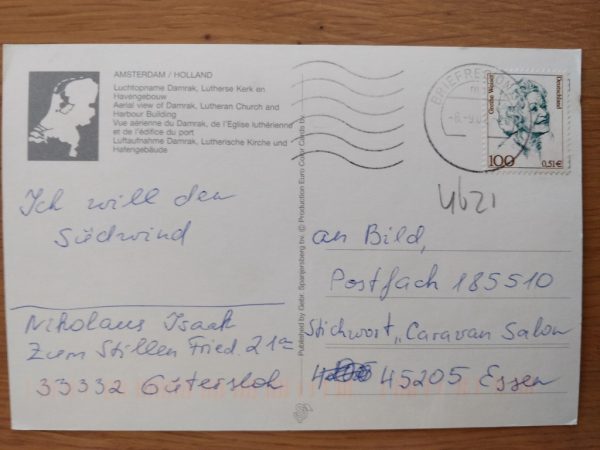 AMSTERDAM / HOLLAND
Luchtopname Damrak, Lutherse Kerk en
Havengebouw
Aerial view of Damrak, Lutheran Church and
Harbour Building
Vue aérienne du Damrak, de l'Eglise luthérienne
et de l'édifice du port
Luftaufnahme Damrak, Lutherische Kirche und
Hafengebäude
Ich will den
Südwind
Nikolaus Isaak
Zum Stillen Fried 21a
33332 Gütersloh
Published by Gebr. Spanjersberg bv. © Production Euro Color Cards bv.
BRIEFZE
Deutschland
100
0,51€
4621
an Bild,
Postfach 185510
Stichwort „Caravan Salon
45205 Essen